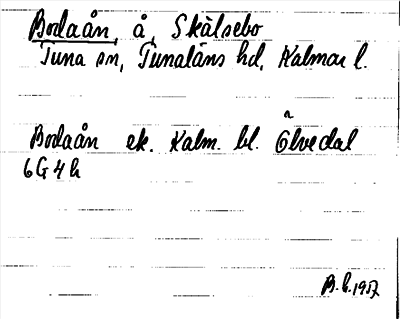 Bodaån, å, Skälsebo
Tuna sn, Tunaläns hd, Kalmar l.
Bodaån ek. Kalm. bl. Ölvedal
6G4h
B. h. 1957